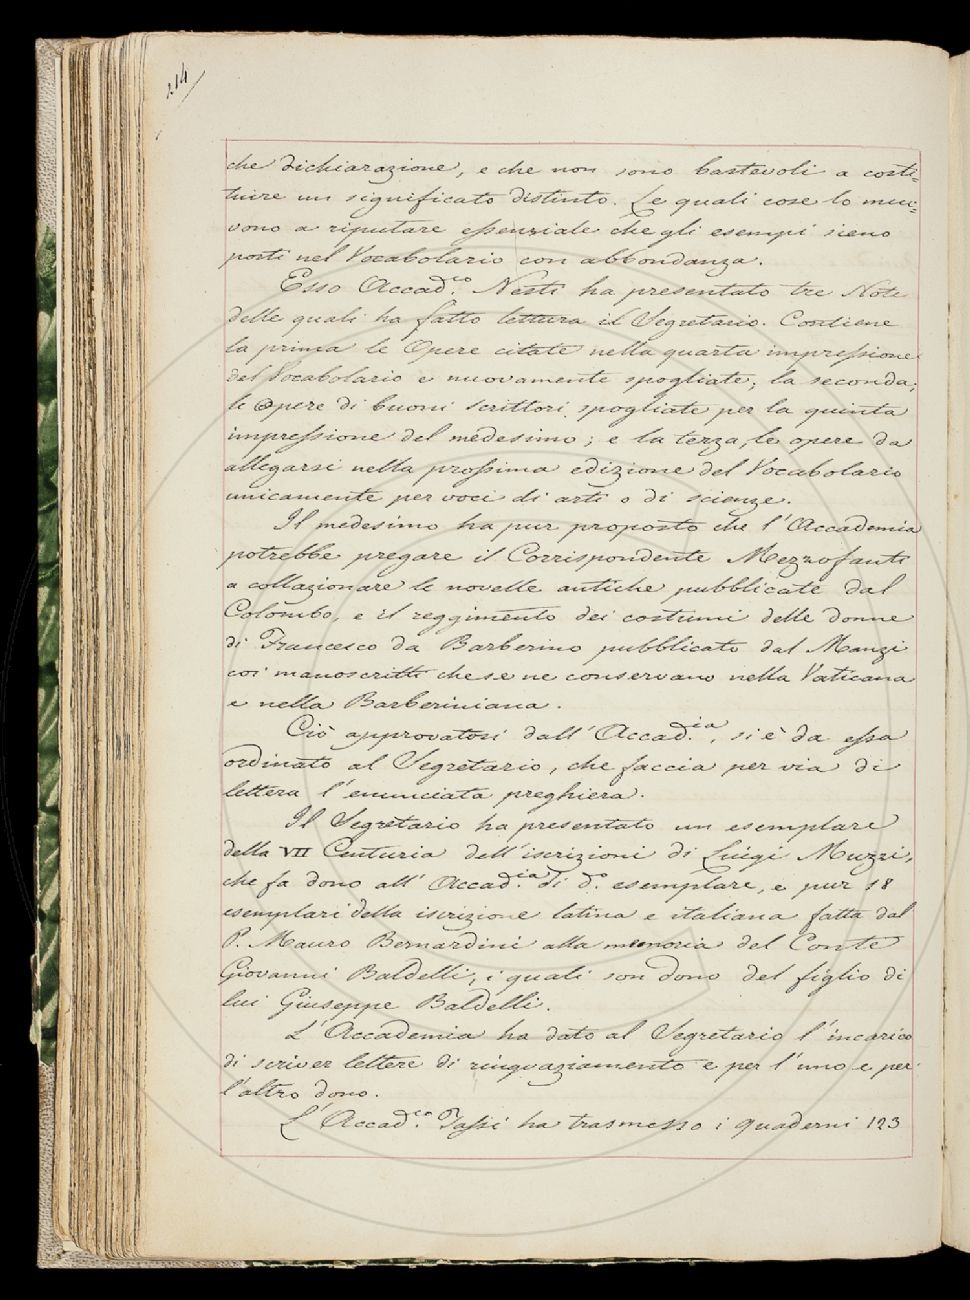 214
che dichiarazione, e che non sono bastevoli a costi-
tuire un significato distinto. Le quali cose lo muo-
vono a riputare essenziale che gli esempi sieno
posti nel Vocabolario con abbondanza.
Esso Accad.co Nesti ha presentato tre Note
delle quali ha fatto lettura il Segretario. Contiene
la prima le Opere citate nella quarta impressione
del Vocabolario e nuovamente spogliate; la seconda,
le opere di buoni scrittori spogliate per la quinta
impressione del medesimo; e la terza, le opere da
allegarsi nella prossima edizione del Vocabolario
unicamente per voci di arti o di scienze.
Il medesimo ha pur proposto che l'Accademia
potrebbe pregare il Corrispondente Mezzofanti
a collazionare le novelle antiche pubblicate dal
Colombo, e il reggimento dei costumi delle donne
di Francesco da Barberino pubblicato dal Manzi
coi manoscritti che se ne conservano nella Vaticana
e nella Barberiniana.
Ciò approvatosi dall'Accad.ia, si è da essa
ordinato al Segretario, che faccia per via di
lettera l'enunciata preghiera.
Il Segretario ha presentato un esemplare
della VII Centuria dell'iscrizioni di Luigi Muzzi,
che fa dono all'Accad.ia di d.o esemplare, e pur 18
esemplari della iscrizione latina e italiana fatta dal
P. Mauro Bernardini alla memoria del Conte
Giovanni Baldelli, i quali son dono del figlio di
lui Giuseppe Baldelli.
L'Accademia ha dato al Segretario l'incarico
di scriver lettere di ringraziamento e per l'uno e per
l'altro dono.
L'Accad.co Tassi ha trasmesso i quaderni 123